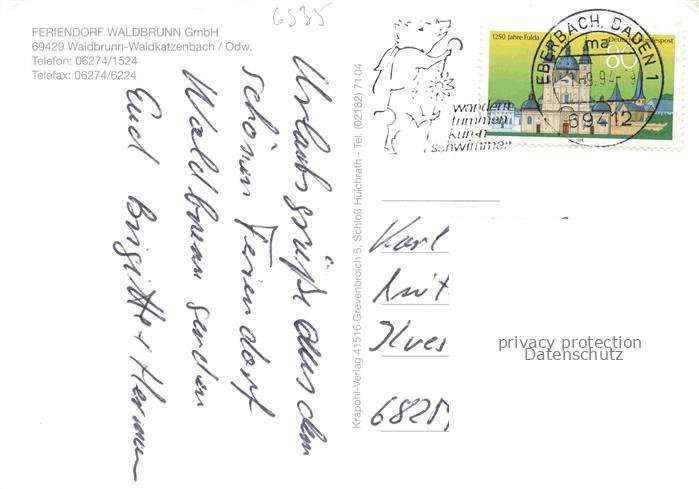 6535
FERIENDORF WALDBRUNN GmbH
69429 Waldbrunn-Waldkatzenbach / Odw.
Telefon: 06274/1524
Telefax: 06274/6224
Urlaubsgrüße aus dem
schönen Feriendorf
Waldbrunn senden
Euch Brigitte + Herman
Krapohl-Verlag 41516 Grevenbroich 5, Schloß Hülchrath - Tel. (02182) 71 04
wandern
trimmen
kuren
schwimmen
1250 Jahre Fulda
Deutsche Bundespost
80
EBERBACH, BADEN 1
ma
69412
Karl
Ilves
privacy protection
Datenschutz